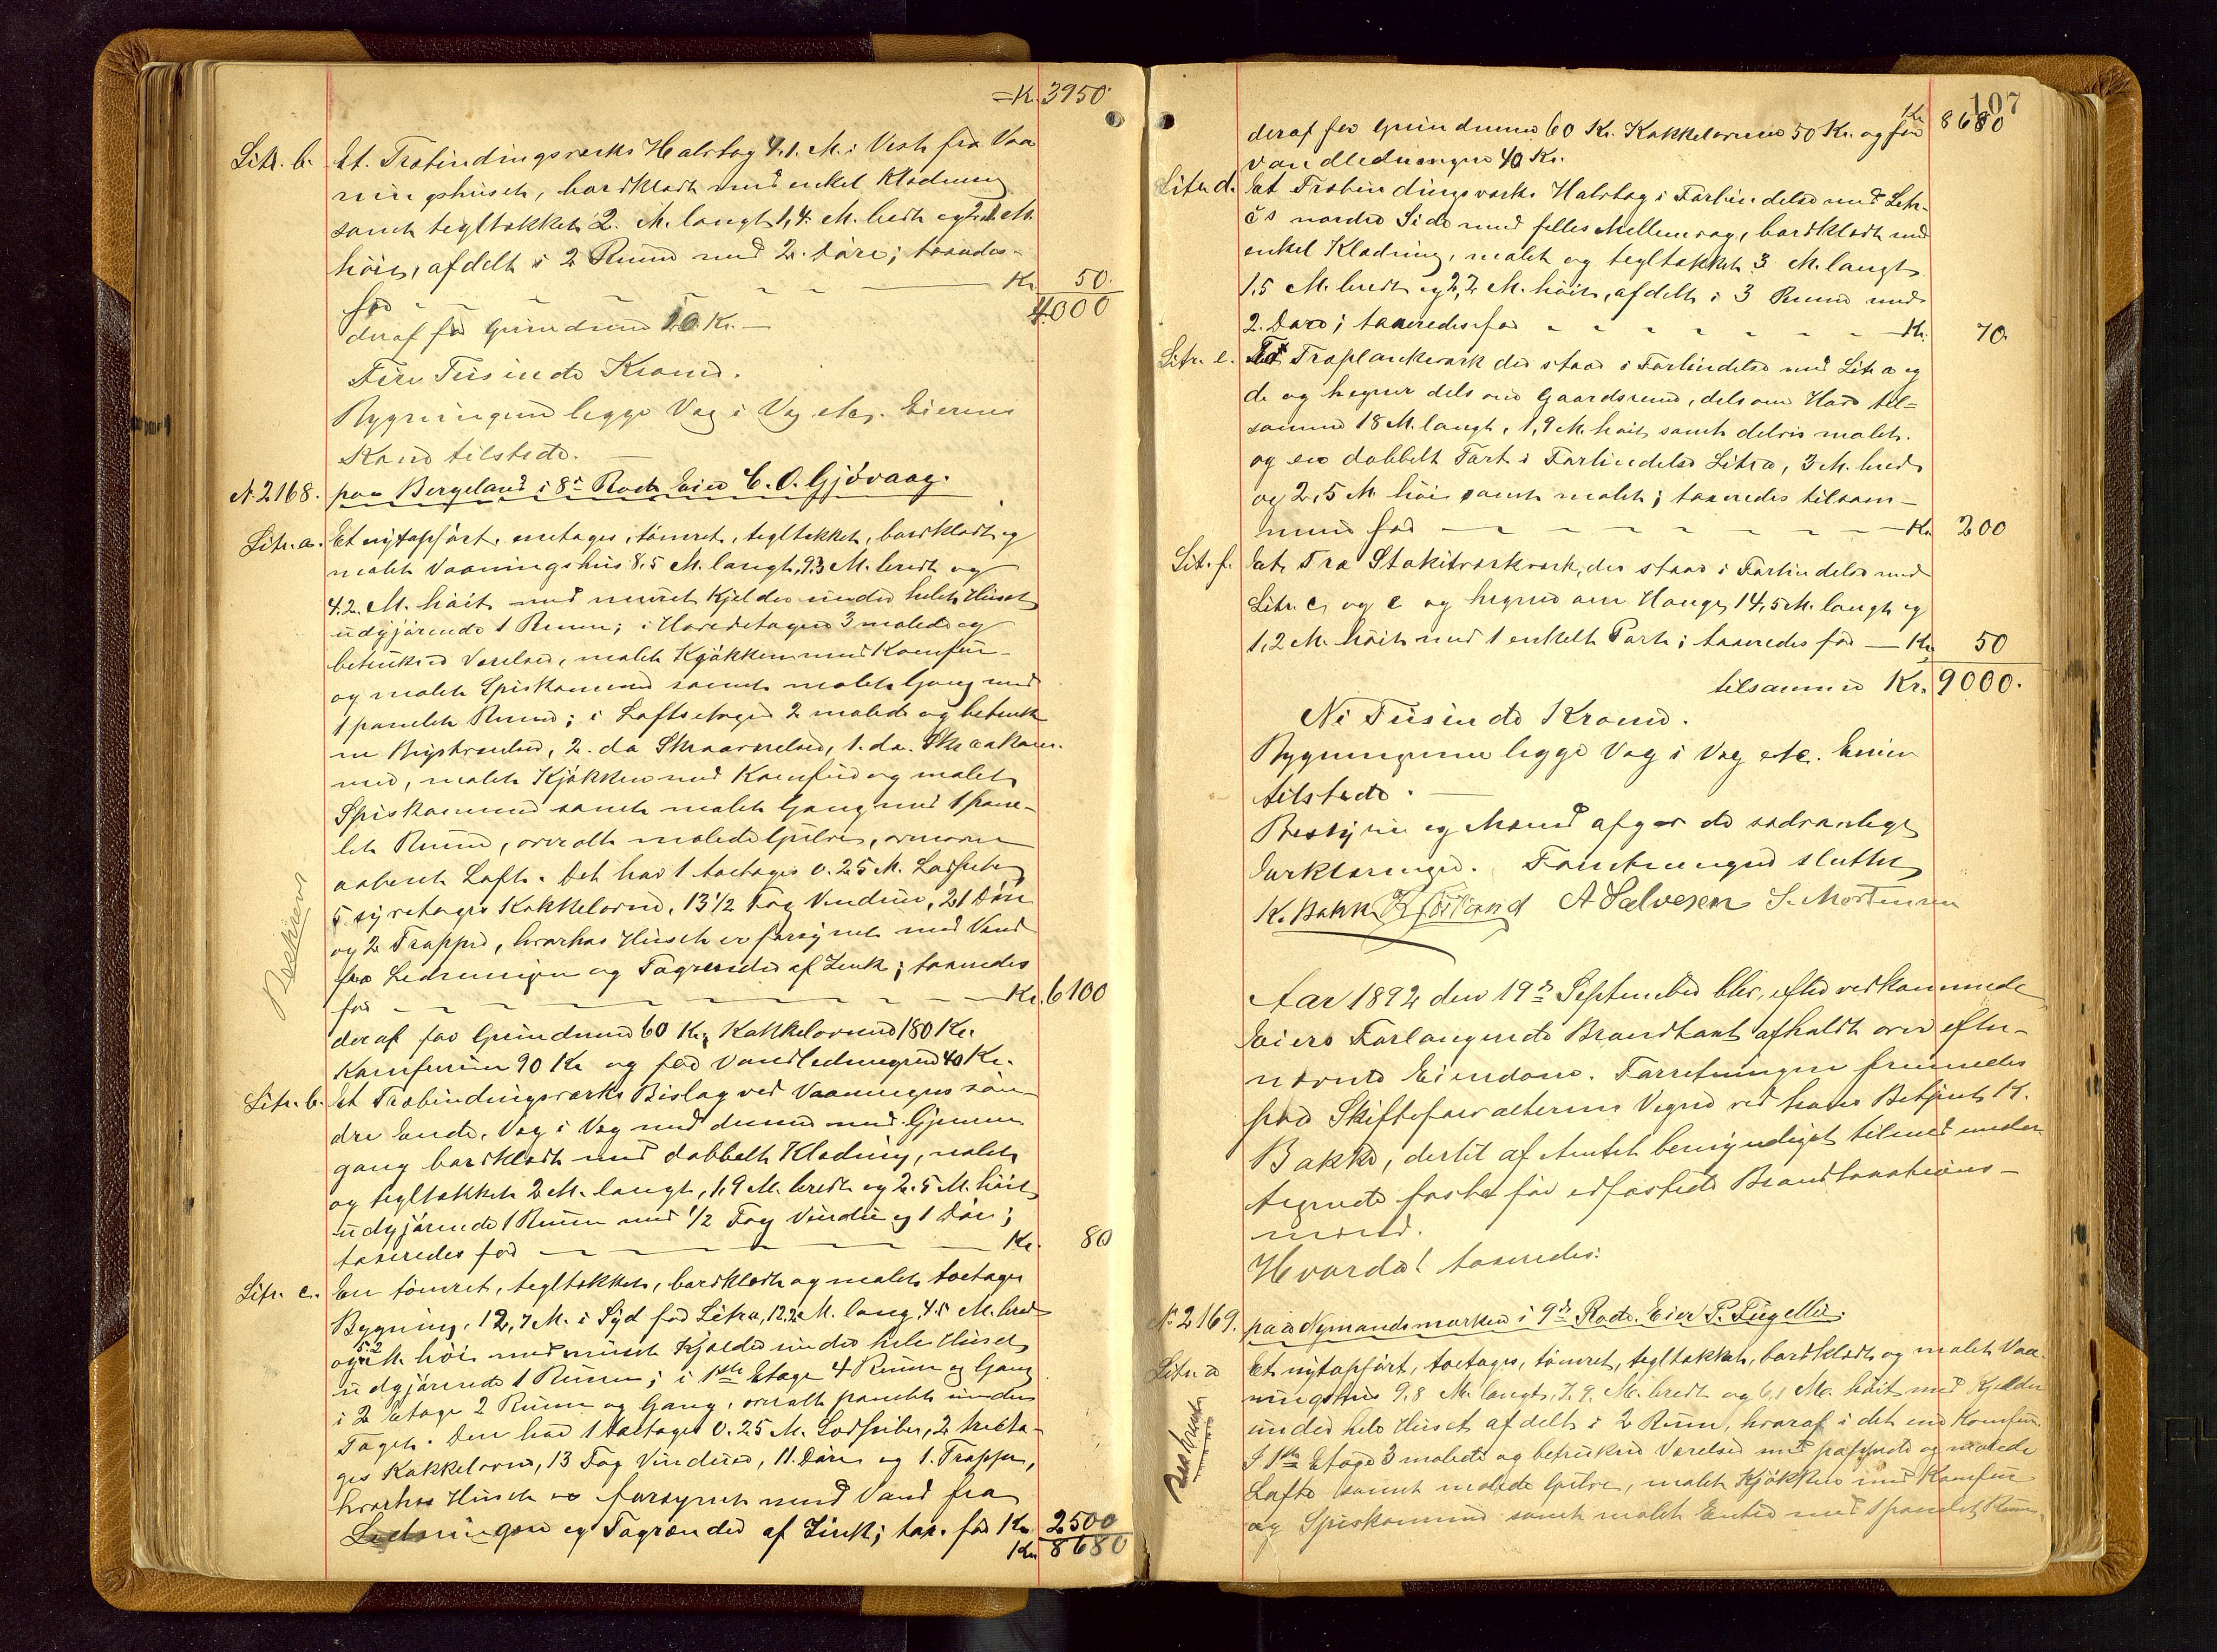 =Kr. 3950
Litr. b. Et Træbindingsværks Halvtag 4.1. M. i Vest fra Vaa
ningshuset, bordklædt med enkel Klædning
samt tegltækket 2. M. langt 1,4 M. bredt og 2.1 M.
höit, afdelt i 2 Rum med 2. Döre; taxeredes
for Kr. 50.
4000
deraf for Grundmur 20 Kr. —
Fire Tusinde Kroner.
Bygningerne ligge Væg i Væg etc. Eierens
Kone tilstede. —
N. 2168. paa Bergeland i 8de Rode Eier C. O. Gjövaag.
Litr. a. Et nytopfört, enetages, tömret, tegltækket, bordklædt og
malet Vaaningshus 8,5 M. langt, 9.3 M. bredt og
4.2. M. höit med muret Kjelder under hele Huset
udgjörende 1 Rum; i Hovedetagen 3 malede og
betrukne Værelser, malet Kjökken med Komfur
og malet Spiskammer samt malet Gang med
1 panelet Rum; i Loftsetagen 2 malede og betruk
ne Kvistværelser, 2. do Skraaværelser, 1. do. Skraakam-
mer, malet Kjökken med Komfur og malet
Spiskammer samt malet Gang med 1 pane-
let Rum, overalt malede Gulve, ovenover
aabent Loft. Det har 1 toetages 0.25 M. Lodpibe,
5 syvetages Kakkelovne, 13 1/2 Fag Vinduer, 21 Döre
og 2 Trapper, hvorhos Huset er forsynet med Vand
fra Ledningen og Tagrender af Zink; taxeredes
for Kr. 6100
deraf for Grundmur 60 Kr, Kakkelovnene 180 Kr.
Komfurene 90 Kr og for Vandledningen 40 Kr.
Litr. b. Et Træbindingsværks Bislag ved Vaaningens sön-
dre Ende, Væg i Væg med denne med Gjennem
gang bordklædt med dobbelt Klædning, malet
og tegltækket 2 M. langt, 1,9 M. bredt og 2.5 M. höit
udgjörende 1 Rum med 1/2 Fag Vindue og 1 Dör;
taxeredes for Kr. 80
Litr. c. En tömret, tegltækket, bordklædt og malet toetages
Bygning, 12,7 M. i Syd for Litr a, 12.2 M. lang, 4.5 M. bred
og 5.2 M. höi med muret Kjelder under hele Huset
udgjörende 1 Rum; i 1ste Etage 4 Rum og Gang
i 2 Etage 2 Rum og Gang, overalt panelt under
Taget. Den har 1 toetages 0.25 M. Lodpibe, 2 treeta-
ges Kakkelovne, 13 Fag Vinduer, 11. Döre og 1. Trappe,
hvorhos Huset er forsynet med Vand fra
Ledningen og Tagrender af Zink; tax. for Kr. 2500
Kr. 8680
107
Kr 8680
deraf for Grundmur 60 Kr. Kakkelovnene 50 Kr. og for
vandledningen 40 Kr.
Litr. d. Et Træbindingsværks Halvtag i Forbindelse med Litr.
c's nordre Side med fælles Mellemvæg, bordklædt med
enkel Klædning, malet og tegltækket 3 M. langt
1.5 M. bredt og 2,2 M. höit, afdelt i 3 Rum med
2. Döre; taxeredes for Kr. 70.
Litr. e. Et Træplankeværk der staar i Forbindelse med Litr a og
d. og hegner dels om Gaardsrum, dels om Have til-
sammen 18 M. langt, 1,9 M. höit samt delvis malet.
og en dobbelt Port i Forbindelse Litr a, 3 M. bred
og 2,5 M höi samt malet; taxeredes tilsam-
men for Kr. 200
Lit. f. Et Træ Stakitværk, der staar i Forbindelse med
Litr. c, og e og hegner om Hauge, 14,5 M. langt og
1,2 M. höit med 1 enkelt Port; taxeredes for Kr. 50
tilsammen Kr. 9000.
Ni Tusinde Kroner.
Bygningerne ligge Væg i Væg etc. Eieren
tilstede. —
Bestyrer og Mænd afgav de sædvanlige
Erklæringer. Forretningen sluttet
K. Bakke A Salvesen S. Mortensen
Aar 1892 den 19de September blev, efter vedkommende
Eiers Forlangende Brandtaxt afholdt over efter-
nævnte Eiendom. Forretningen fremmedes
for Skifteforvalterens Vegne ved hans Betjent K.
Bakke, dertil af Amtet bemyndiget tilmed under-
tegnede faste for edfæstede Brandtaxations-
mænd.
Hvorda! taxeredes:
No 2169. paa Nymandsmarken i 9de Rode. Eier P. Fugelli.
Litr. a Et nytopfört, toetages, tömret, tegltækket, bordklædt og malet Vaa-
ningshus 9,8 M. langt, 7.9. M. bredt og 6,1 M. höit med Kjelder
under hele Huset afdelt i 2 Rum, hvoraf i det ene Komfur.
I 1ste Etage 3 malede og betrukne Værelser med pappede og malede
Lofte samt malede Gulve, malet Kjökken med Komfur
og Spiskammer samt malet Entré med 1 panelet Rum,